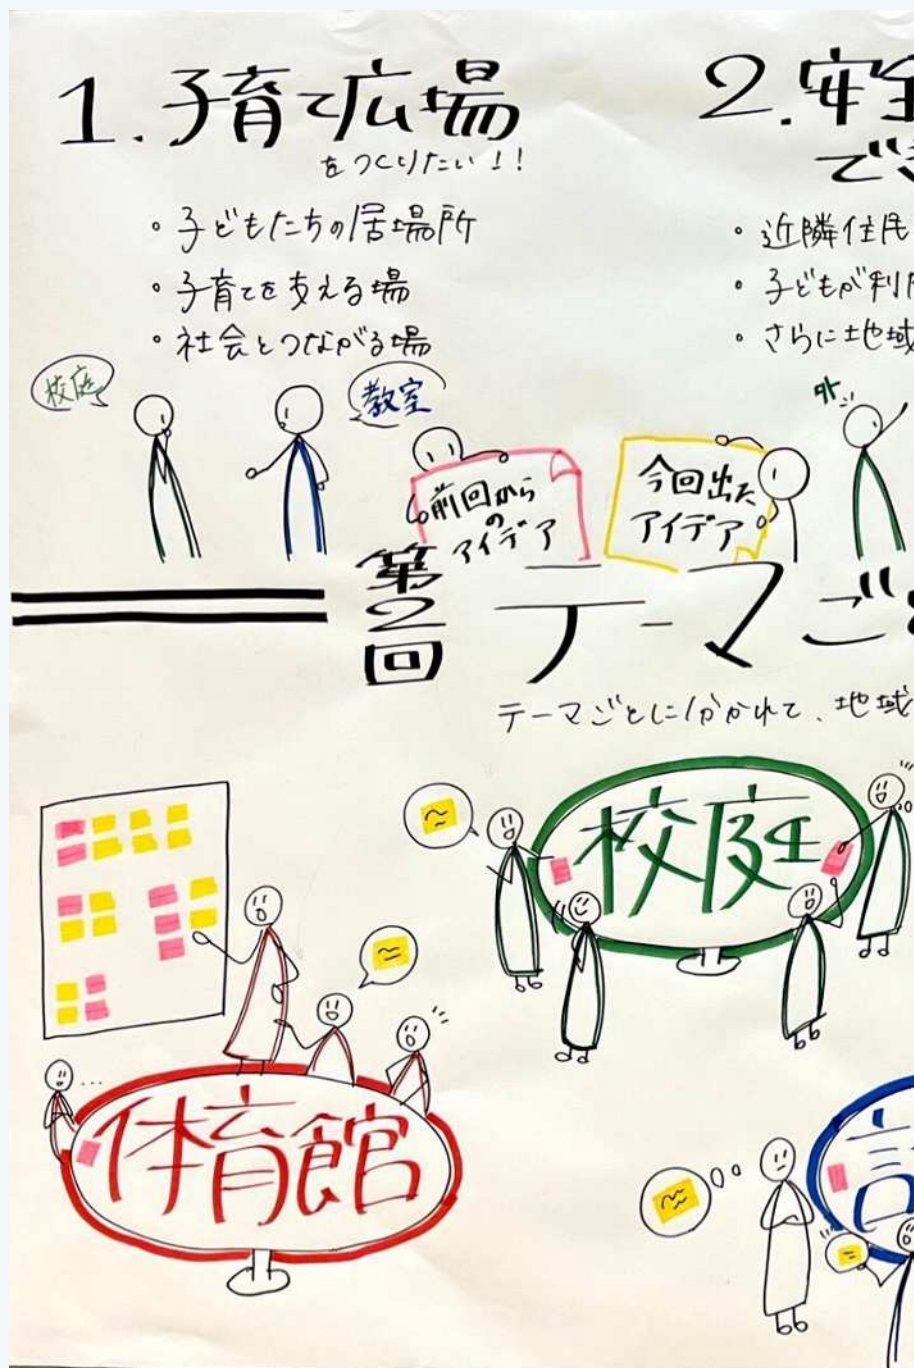 1. 子育て広場
をつくりたい!!
・子どもたちの居場所
・子育てを支える場
・社会とつながる場
校庭
教室
2. 安全
でき
・近隣住民
・子どもが利用
・さらに地域
外
前回から
の
アイデア
今回出た
アイデア
第2回
テーマごと
テーマごとに分かれて、地域
校庭
体育館